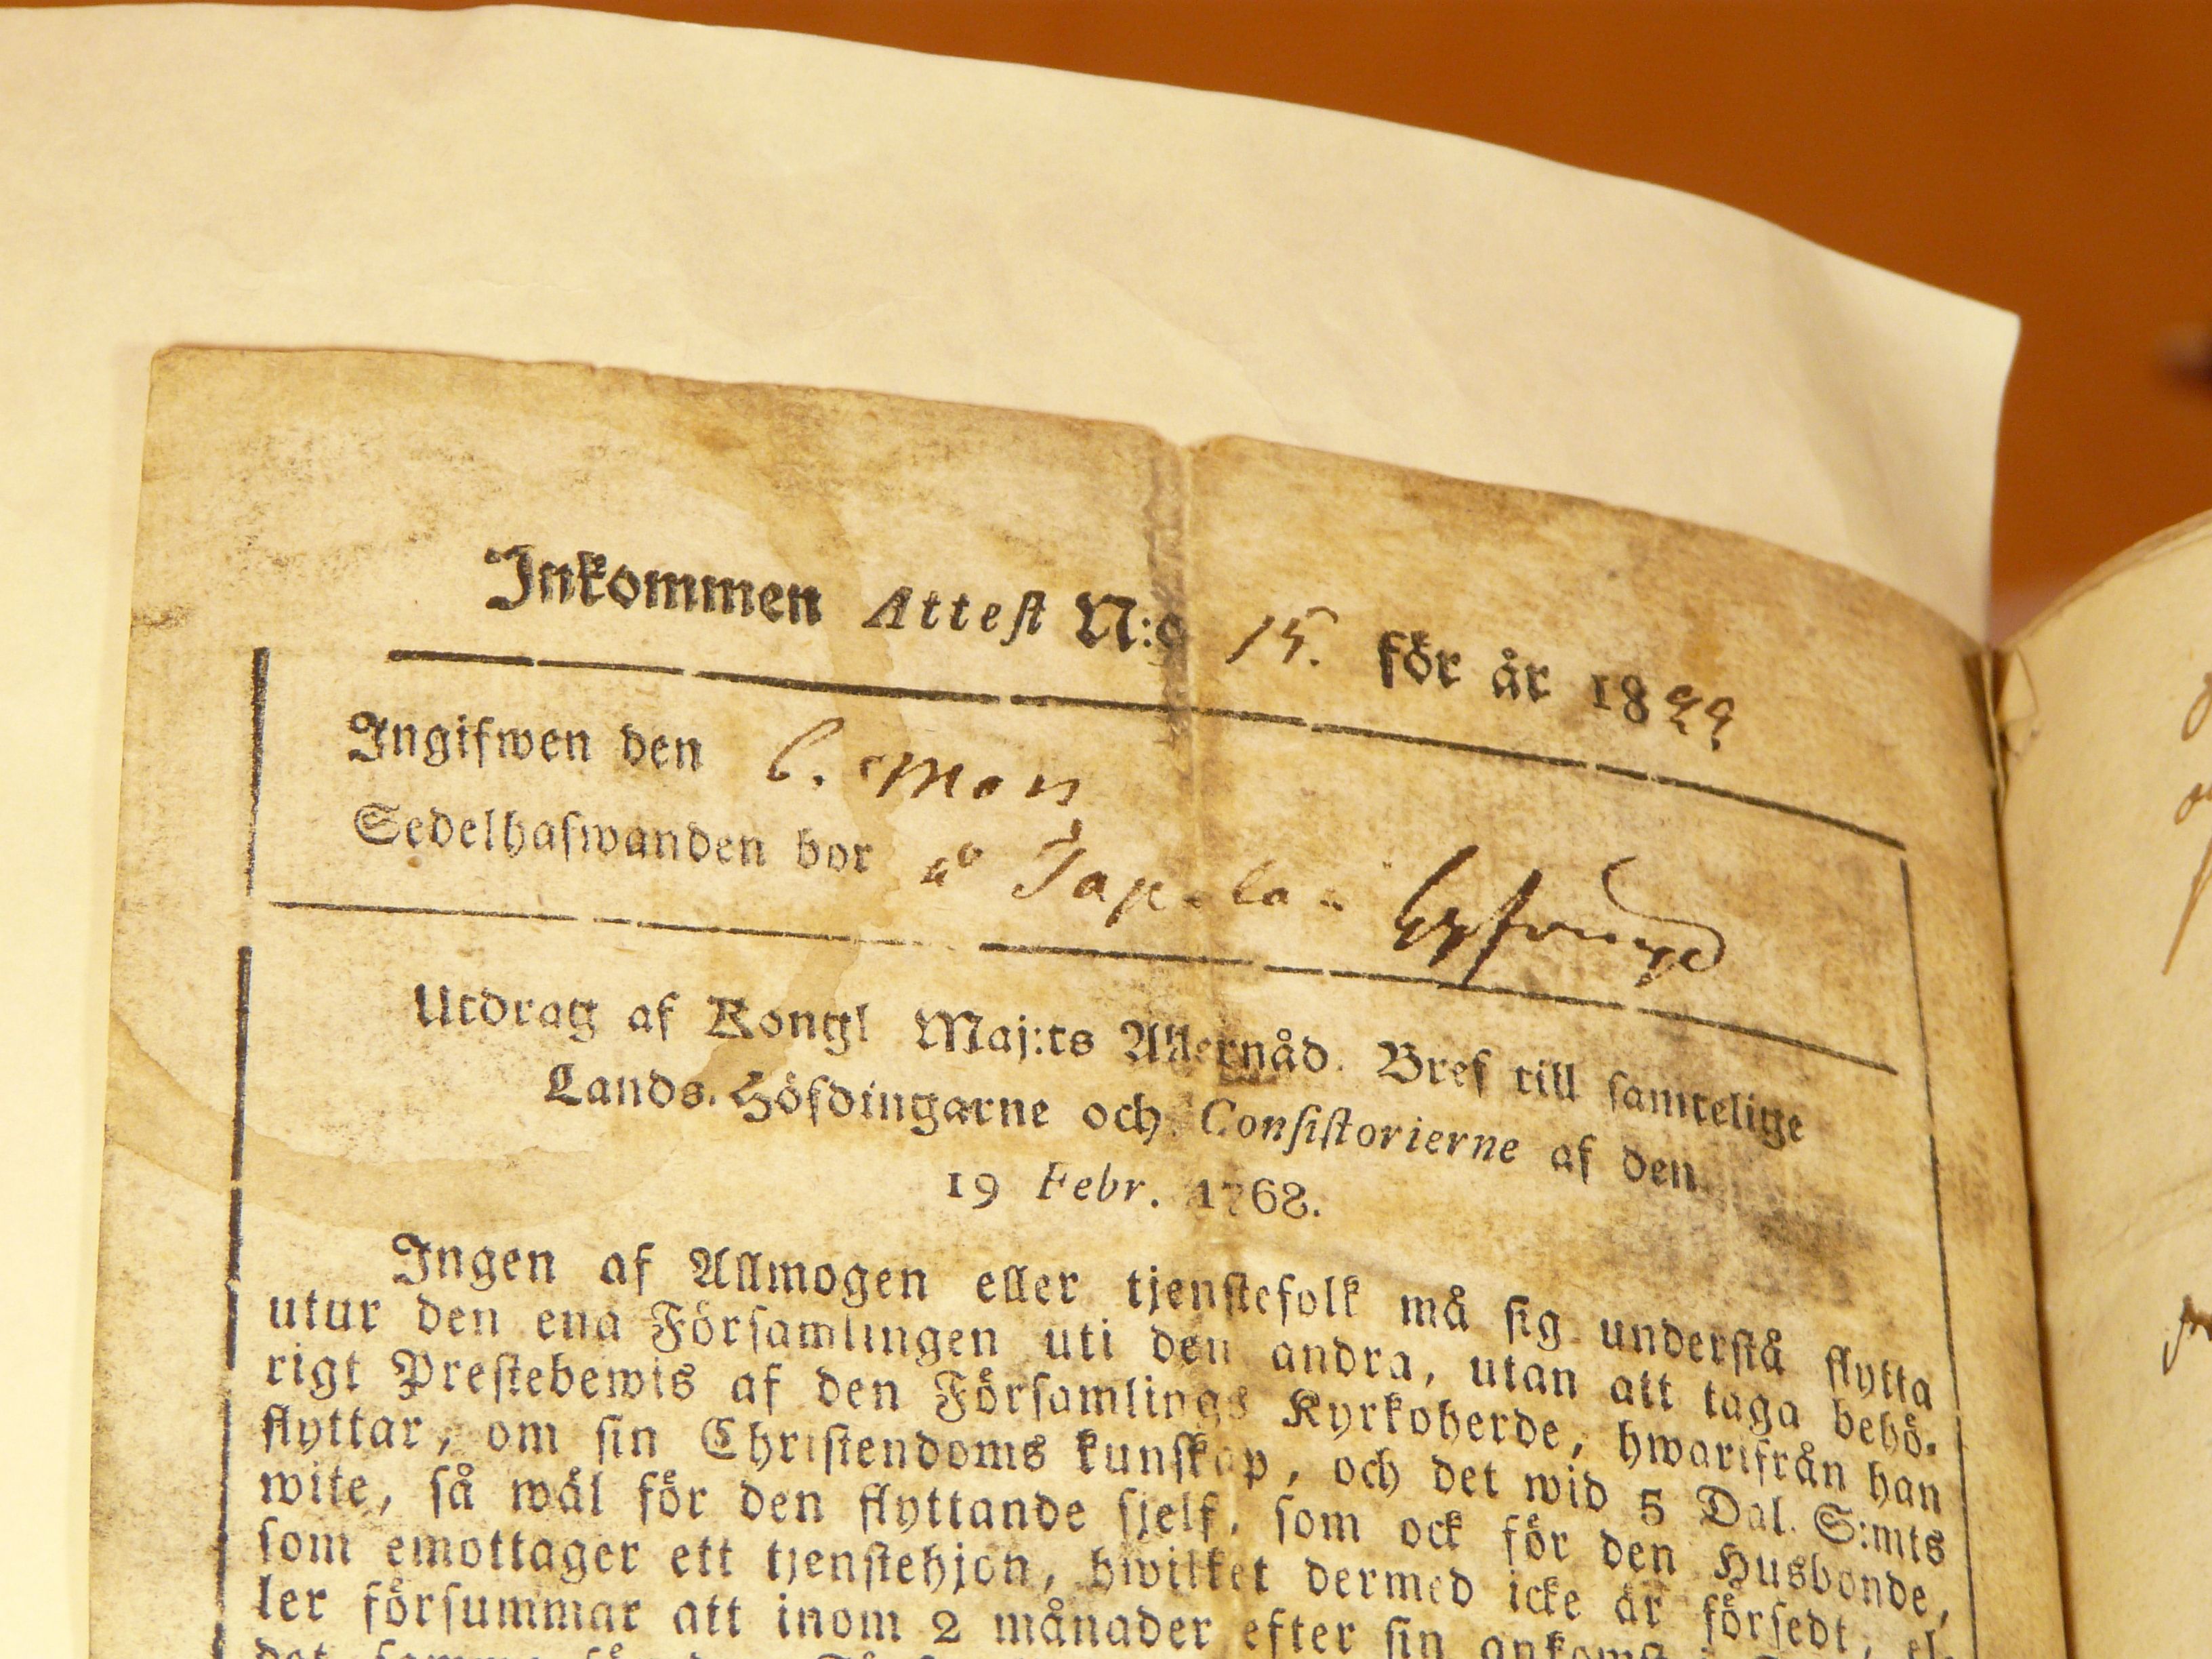 Inkommen Attest N:o 15. för år 1822
Ingifwen den 6. Maij
Sedelhafwanden bor å
Utdrag af Kongl Maj:ts Allernåd. Bref till samtelige
Lands-Höfdingarne och Consistorierne af den
19 Febr. 1768.
Ingen af Allmogen eller tjenstefolk må sig understå flytta
utur den ena Församlingen uti den andra, utan att taga behö-
rigt Prestebewis af den Församlings Kyrkoherde, hwarifrån han
flyttar, om sin Christendoms kunskap, och det wid 5 Dal. S:mts
wite, så wäl för den flyttande sjelf, som ock för den Husbonde,
som emottager ett tjenstehjon, hwilket dermed icke är försedt, el-
ler försummar att inom 2 månader efter sin